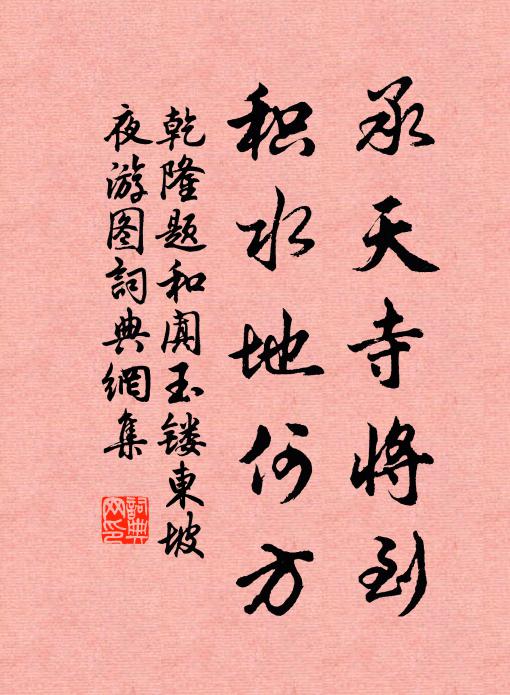 承天寺将到
积水地何方
乾隆题和阗玉镂東坡
夜游图詞典網集
詞典网印